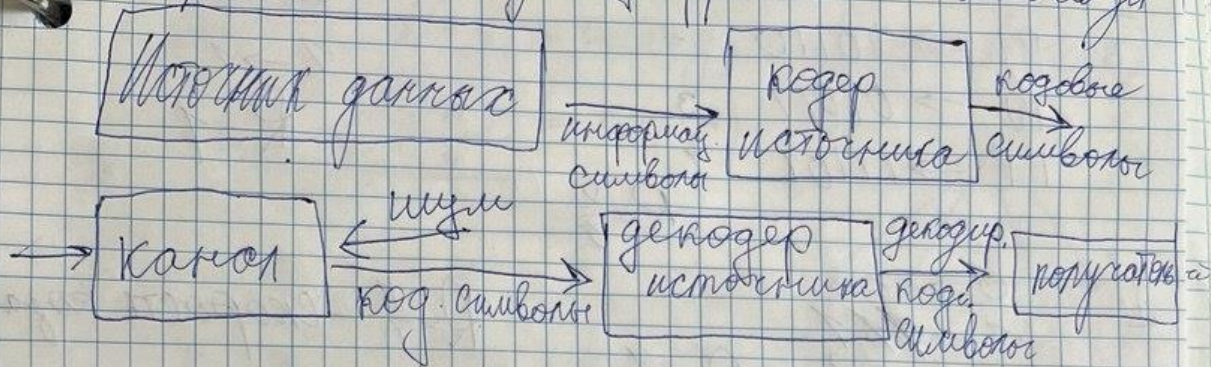 Источник данных
информац.
символы
кодер
источника
кодовые
символы
канал
шум
код. символы
декодер
источника
декодир.
код.
символы
получатель